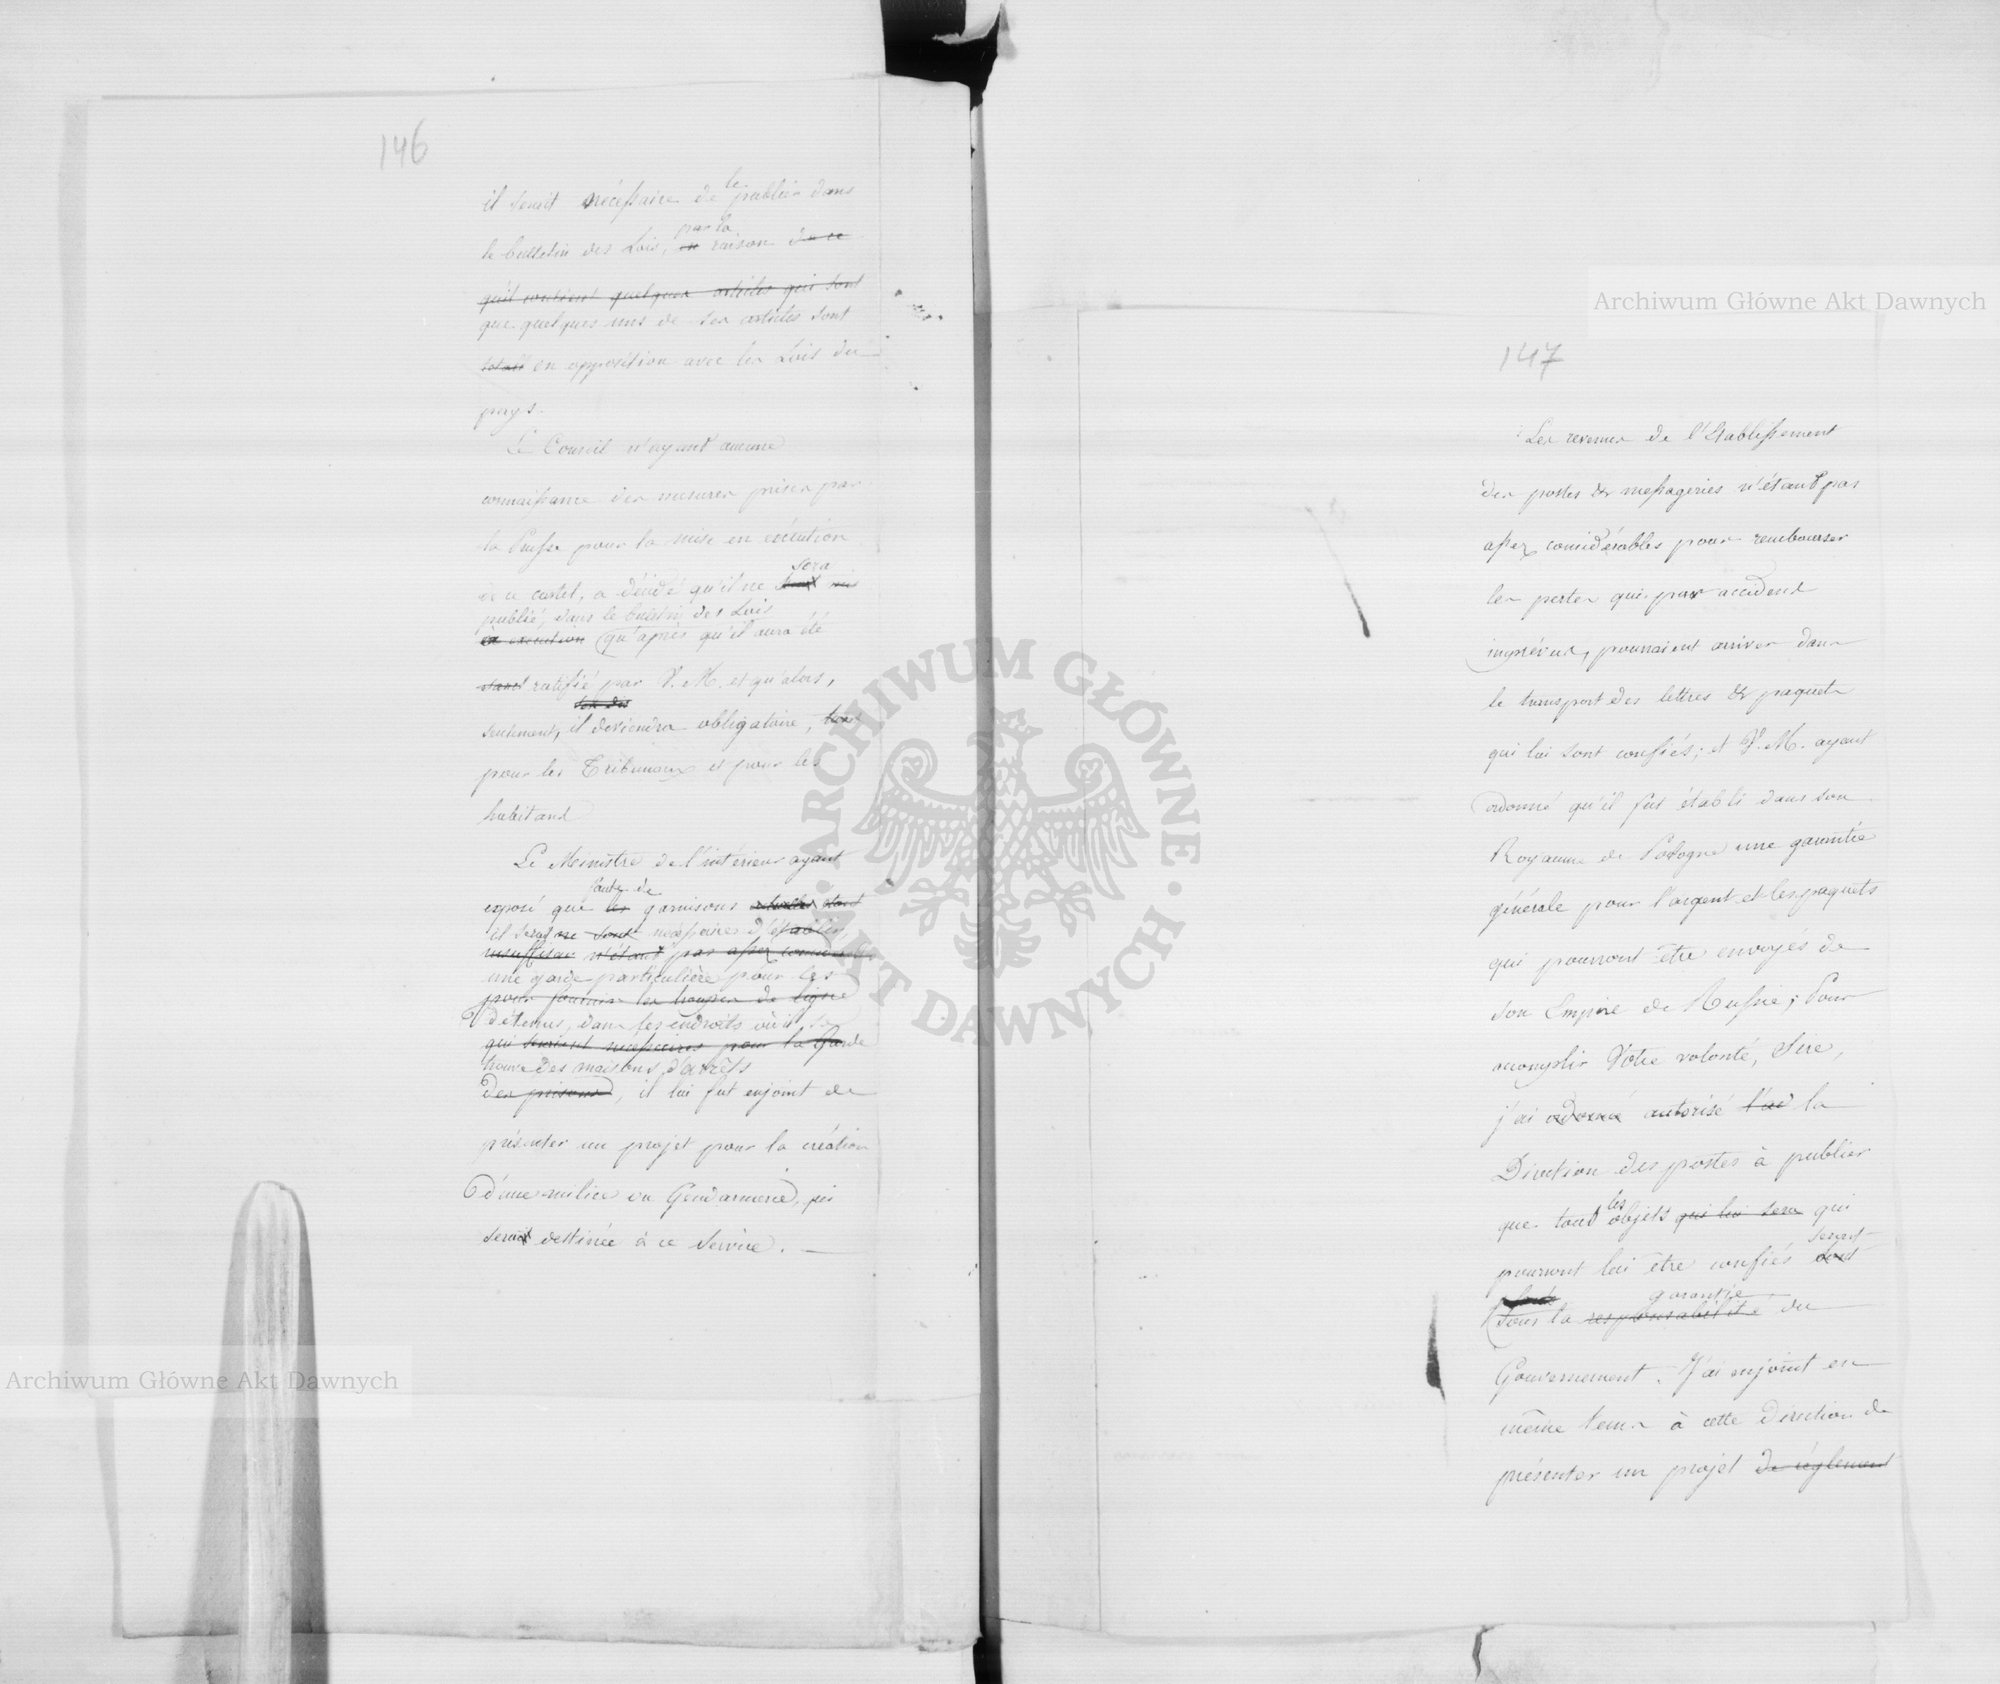 146
il seroit nécessaire de le publier dans
le bulletin des Lois, en par la raison de ce
qu'il contient quelques articles qui sont
que quelques uns de ses articles sont
en opposition avec les Lois du
pays.
Le Conseil n'ayant aucune
connaissance des mesures prises par
la Prusse pour la mise en exécution
de ce cartel, a décidé qu'il ne sera
publié, dans le bulletin des Lois
en execution qu'après qu'il aura été
ratifié par V. M. et qu'alors,
seulement, il deviendra obligatoire,
pour les Tribunaux et pour les
habitans
Le Ministre de l'intérieur ayant
faute de
exposé que les garnisons
il serait ne sont necessaires d'établir,
n'étant pas assez
une garde particulière pour les
pour fournir les troupes de ligne
détenus, dans les endroits où il se
qui seraient necessaires pour la Garde
trouve des maisons d'arrêts
des prisons, il lui fut enjoint de
présenter un projet pour la création
d'une milice ou Gendarmerie, qui
serait destinée à ce service.
147
Les revenus de l'Etablissement
des postes & messageries n'étant pas
assez considérables pour rembourser
les pertes qui par accident
imprévus, pourraient arriver dans
le transport des lettres & paquets
qui lui sont confiés; et V. M. ayant
ordonné qu'il fut établi dans son
Royaume de Pologne une garantie
générale pour l'argent et les paquets
qui pourront être envoyés de
son Empire de Russie; Pour
accomplir Votre volonté, Sire,
j'ai ordonné autorisé l'ai la
Direction des postes à publier
que tous les objets qui lui sera qui
pourront lui être confiés sont seront
garantie
sous la responsabilité du
Gouvernement. J'ai enjoint en
même tems à cette Direction de
présenter un projet de réglement
Archiwum Główne Akt Dawnych
Archiwum Główne Akt Dawnych
ARCHIWUM GŁÓWNE AKT DAWNYCH